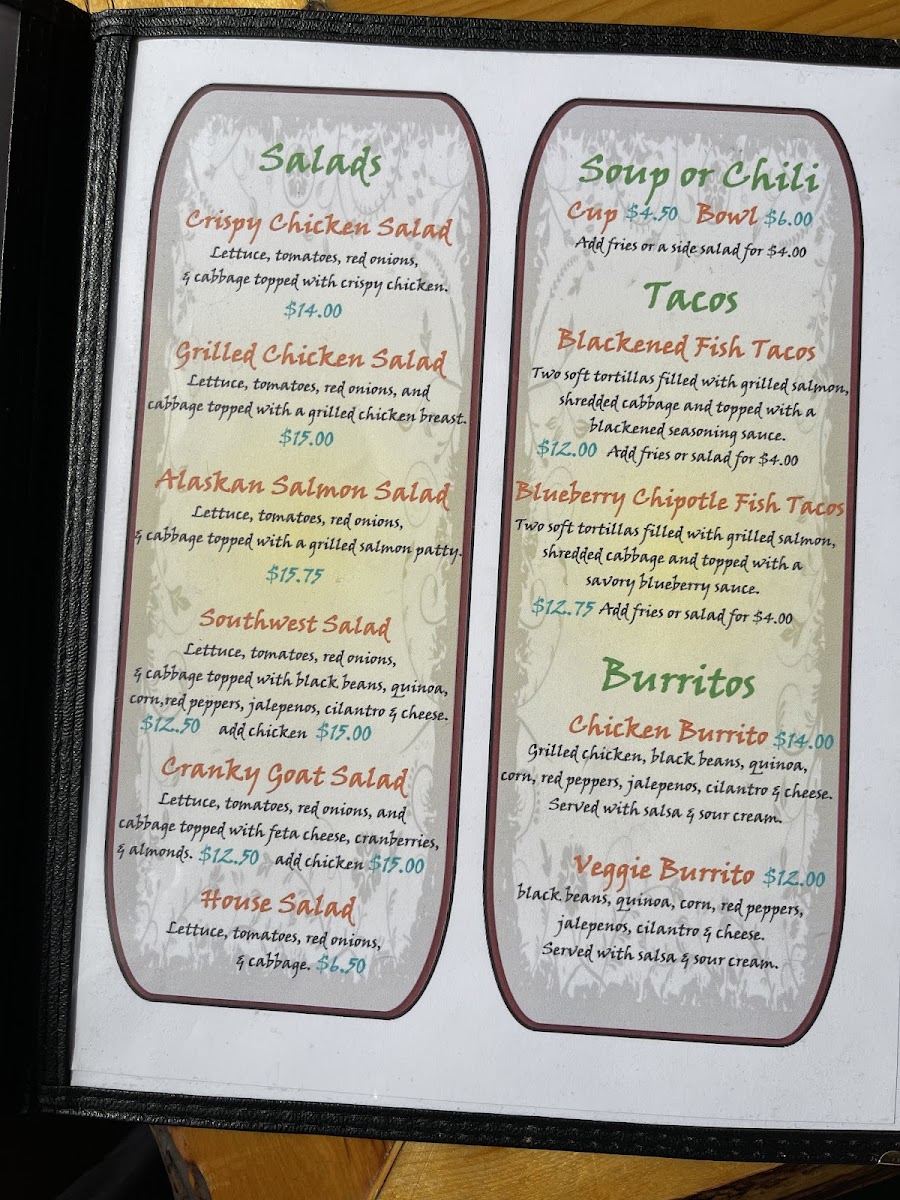 Salads
Crispy Chicken Salad
Lettuce, tomatoes, red onions,
& cabbage topped with crispy chicken.
$14.00
Grilled Chicken Salad
Lettuce, tomatoes, red onions, and
cabbage topped with a grilled chicken breast.
$15.00
Alaskan Salmon Salad
Lettuce, tomatoes, red onions,
& cabbage topped with a grilled salmon patty.
$15.75
Southwest Salad
Lettuce, tomatoes, red onions,
& cabbage topped with black beans, quinoa,
corn,red peppers, jalepenos, cilantro & cheese.
$12.50 add chicken $15.00
Cranky Goat Salad
Lettuce, tomatoes, red onions, and
cabbage topped with feta cheese, cranberries,
& almonds. $12.50 add chicken $15.00
House Salad
Lettuce, tomatoes, red onions,
& cabbage. $6.50
Soup or Chili
Cup $4.50 Bowl $6.00
Add fries or a side salad for $4.00
Tacos
Blackened Fish Tacos
Two soft tortillas filled with grilled salmon,
shredded cabbage and topped with a
blackened seasoning sauce.
$12.00 Add fries or salad for $4.00
Blueberry Chipotle Fish Tacos
Two soft tortillas filled with grilled salmon,
shredded cabbage and topped with a
savory blueberry sauce.
$12.75 Add fries or salad for $4.00
Burritos
Chicken Burrito $14.00
Grilled chicken, black beans, quinoa,
corn, red peppers, jalepenos, cilantro & cheese.
Served with salsa & sour cream.
Veggie Burrito $12.00
black beans, quinoa, corn, red peppers,
jalepenos, cilantro & cheese.
Served with salsa & sour cream.